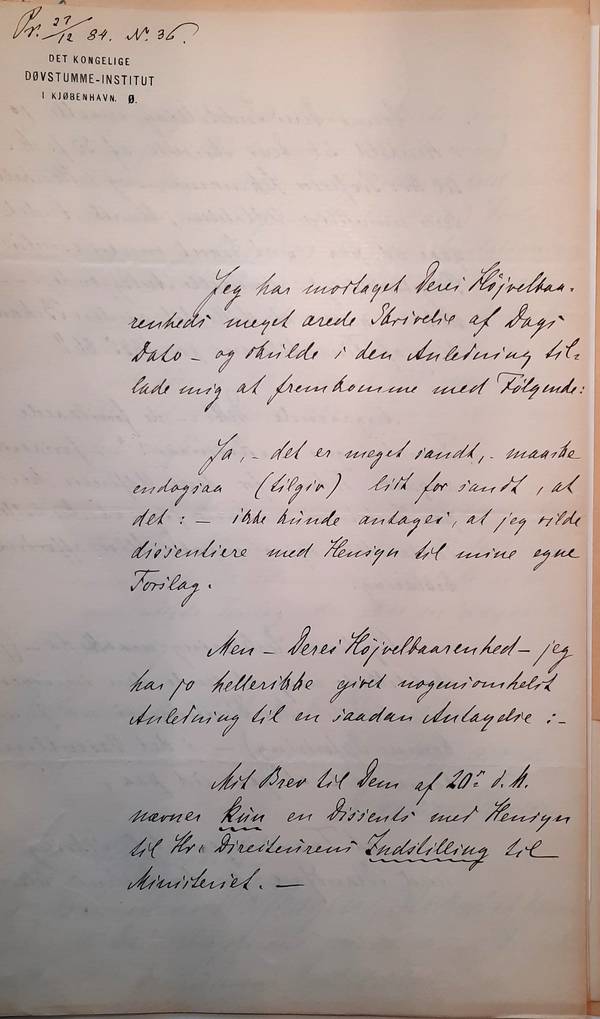 Pr. 27/12 84. No. 36.
DET KONGELIGE
DØVSTUMME-INSTITUT
I KJØBENHAVN. Ø.
Jeg har modtaget Deres Højvelbaa-
renheds meget ærede Skrivelse af Dags
Dato – og skulde i den Anledning til-
lade mig at fremkomme med Følgende:
Ja, – det er meget sandt, – maaske
endogsaa (tilgiv) lidt for sandt, at
det: – ikke kunde antages, at jeg vilde
dissentiere med Hensyn til mine egne
Forslag.
Men – Deres Højvelbaarenhed – jeg
har jo hellerikke givet nogensomhelst
Anledning til en saadan Antagelse: –
Mit Brev til Dem af 20de d. M.
nævner kun en Dissents med Hensyn
til Hr. Directeurens Indstilling til
Ministeriet. –